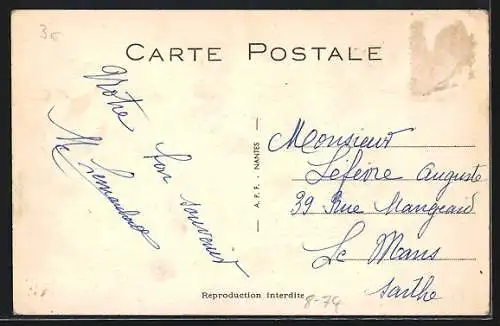 3€
CARTE POSTALE
Notre
bon souvenir
M
A.P.F. - NANTES
Monsieur
Lefèvre Auguste
39 Rue Mangeard
Le Mans
Sarthe
Reproduction interdite
8-74